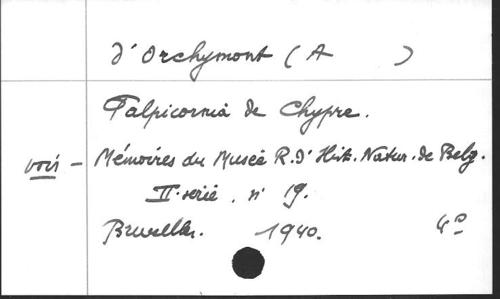 d'Orchymont (A )
Palpicornia de Chypre.
voir – Mémoires du Musée R. d'Hist. Natur. de Belg.
II serie, n° 19.
Bruxelles. 1940. 4°